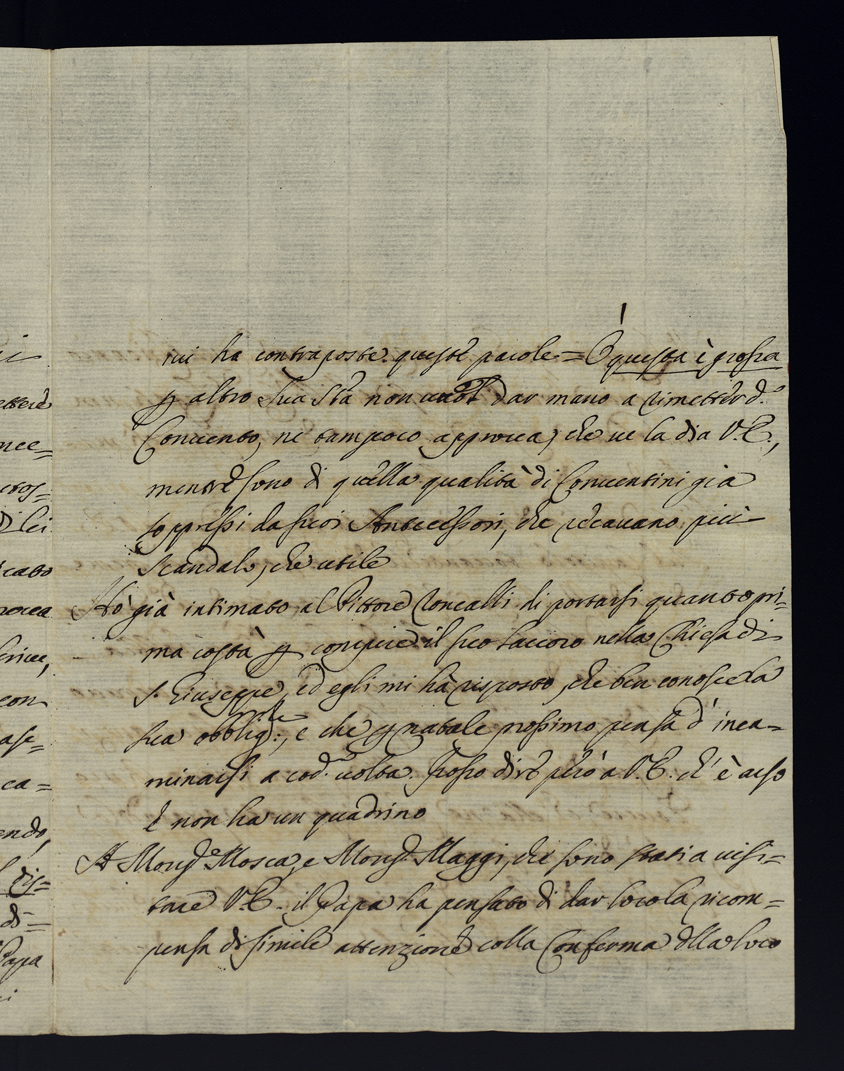 mi ha contraposte queste parole = O questa è grossa
p altro Sua Stà non vuol dar mano a rimetter d.º
Convento, ne tampoco approva, che ve la dia V.E.,
mentre sono di quella qualità di Conventini già
soppressi da suoi Antecessori, che recavano più
scandalo, che utile
Hò già intimato al Pittore Roncalli di portarsi quanto pri=
ma costà p compire il suo lavoro nella Chiesa di
S. Giuseppe, ed egli mi hà risposto, che ben conosce la
sua obblig.ne, e che p natale prossimo pensa d'inca=
minarsi a cod.ª volta. Posso dire però a V.E. ch'è arso
e non ha un quadrino
A Mons.r Mosca, e Mons.r Maggi, che sono stati a visi=
tare V.E. il Papa ha pensato di dar loro la ricom=
pensa di simile attenzione colla Conferma della loro
ei
ettere
nce=
di lei
cato
crive,
con
ase=
ca=
endo,
di=
Papa